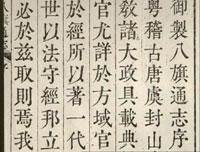 御製八旗通志序
粵稽古唐虞封山
敎諸大政具載典
官尤詳於方域官
於經所以著一代
世以法守經邦立
必於兹取則焉我